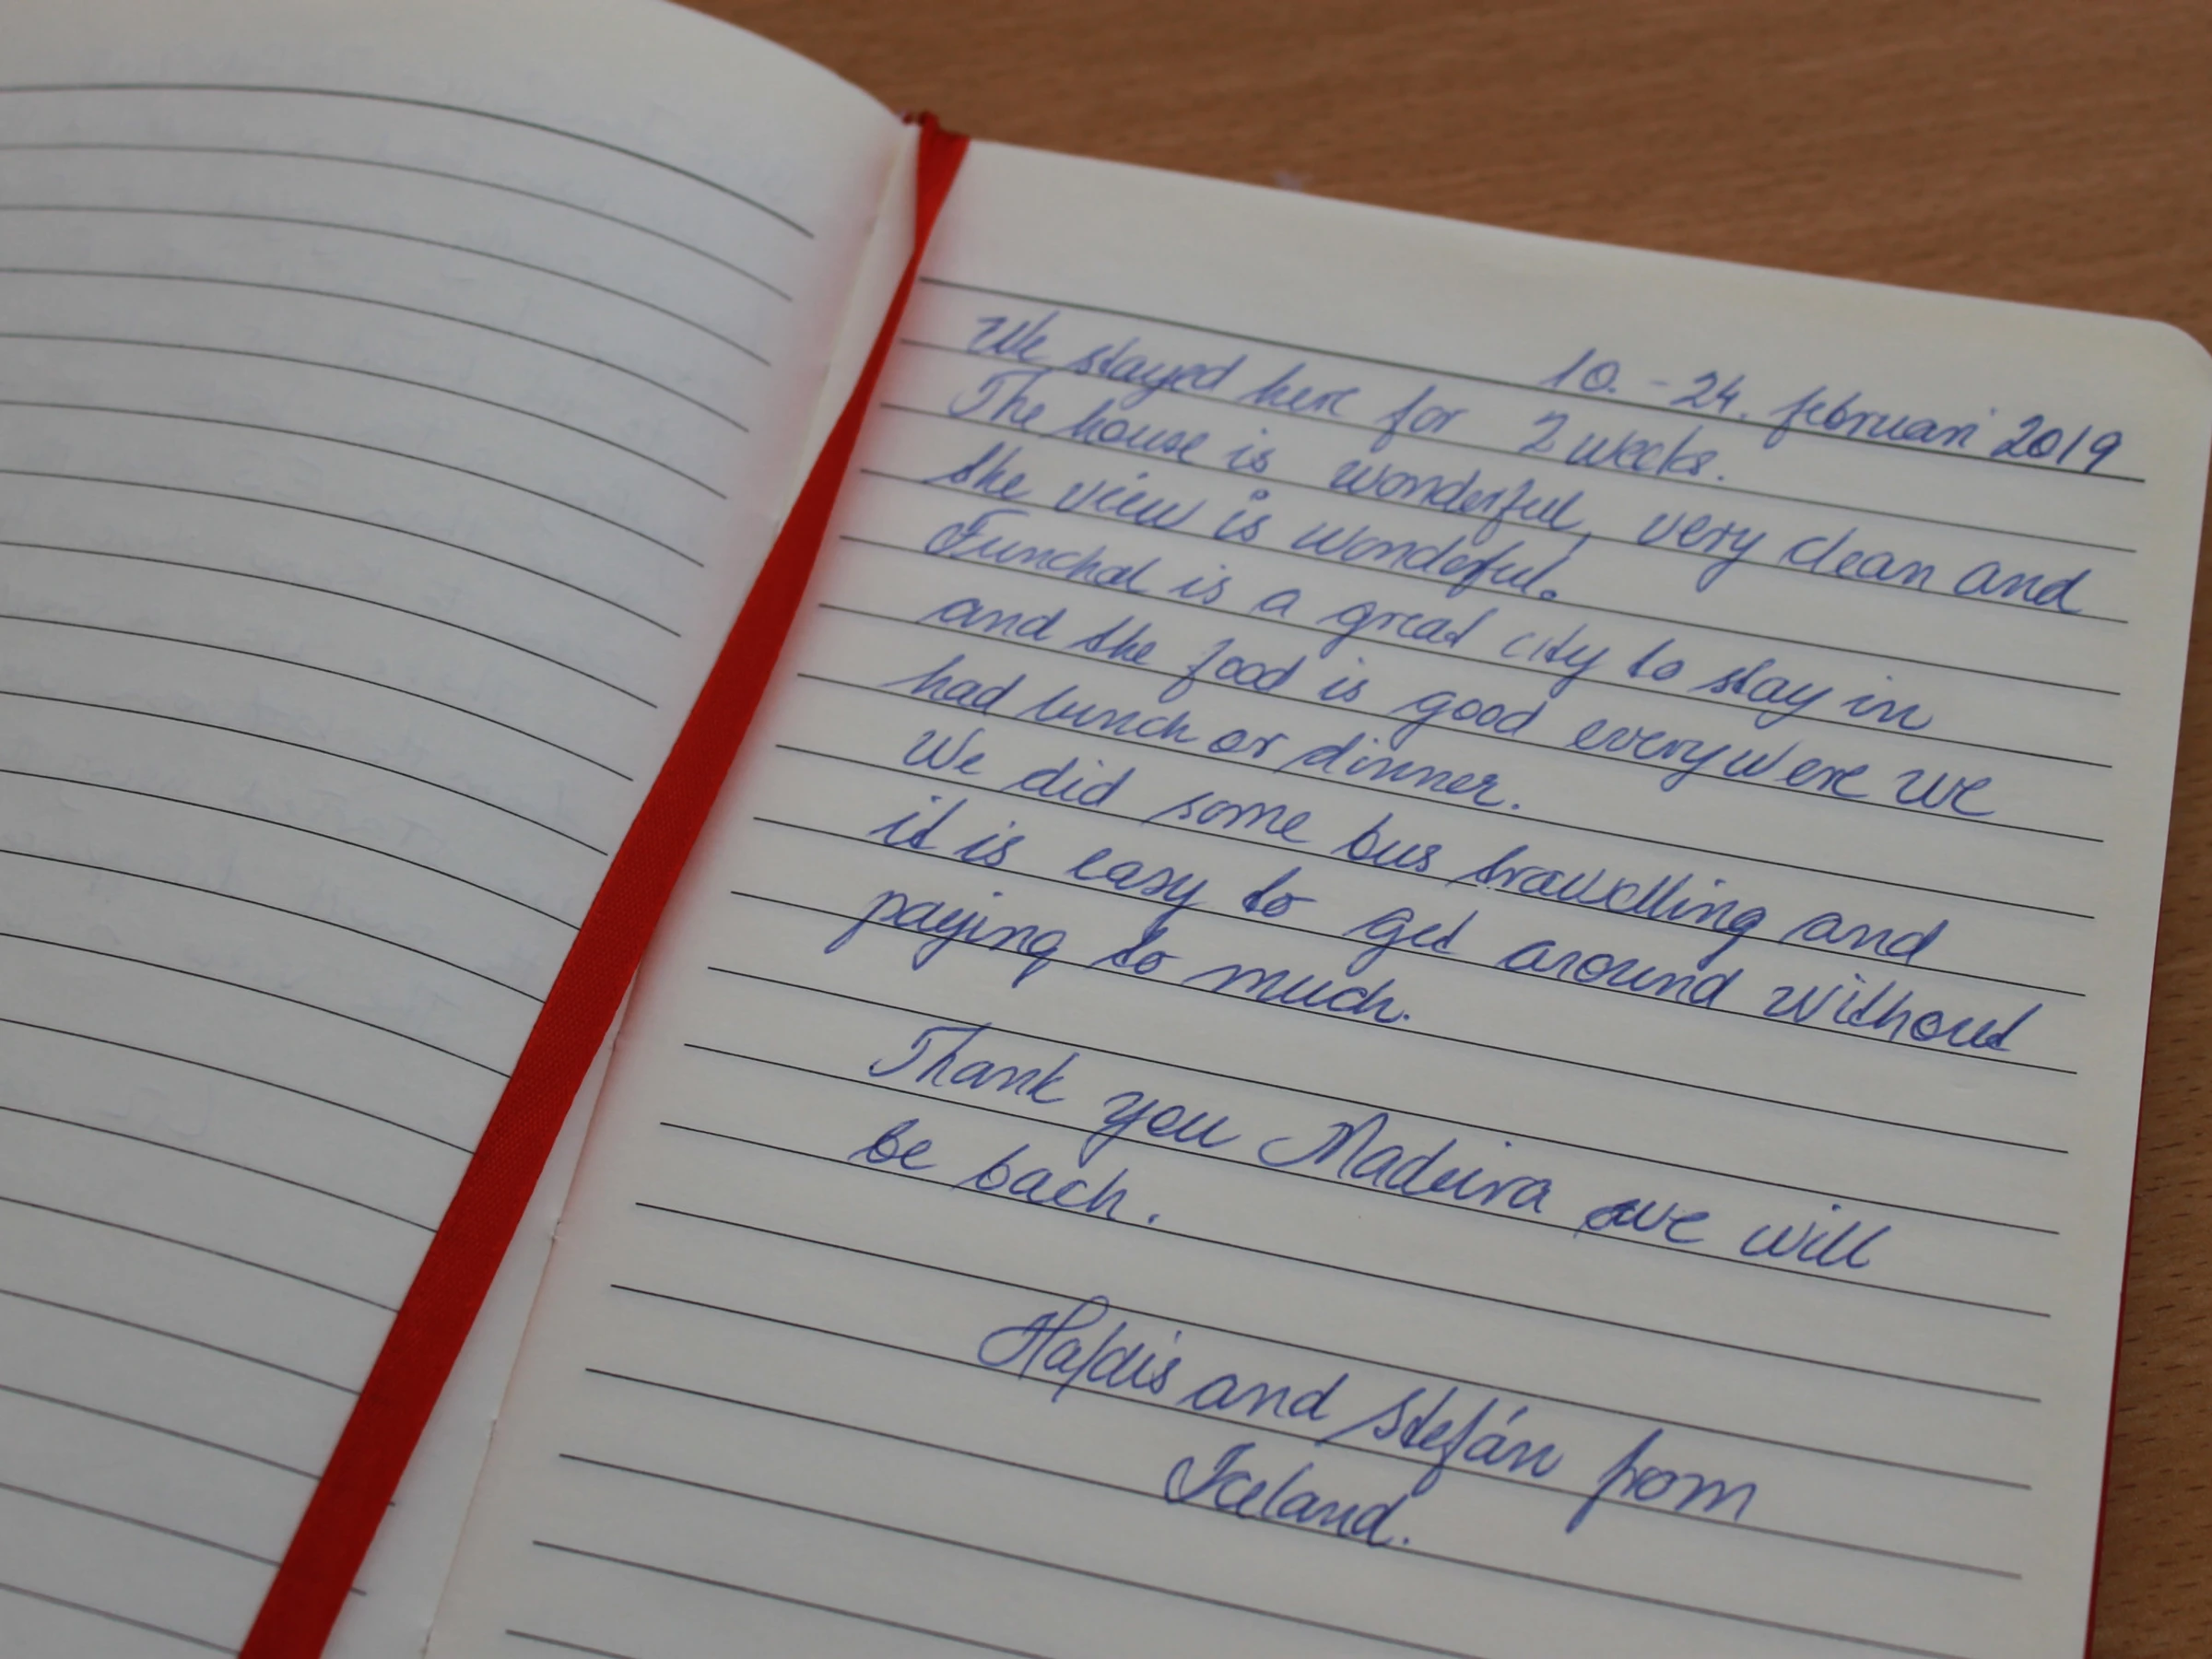 10. - 24. februari 2019
We stayed here for 2 weeks.
The house is wonderful, very clean and
the view is wonderful.
Funchal is a great city to stay in
and the food is good everywere we
had lunch or dinner.
We did some bus travelling and
it is easy to get around without
paying to much.
Thank you Madeira we will
be bach.
Hafdis and Stefán from
Iceland.